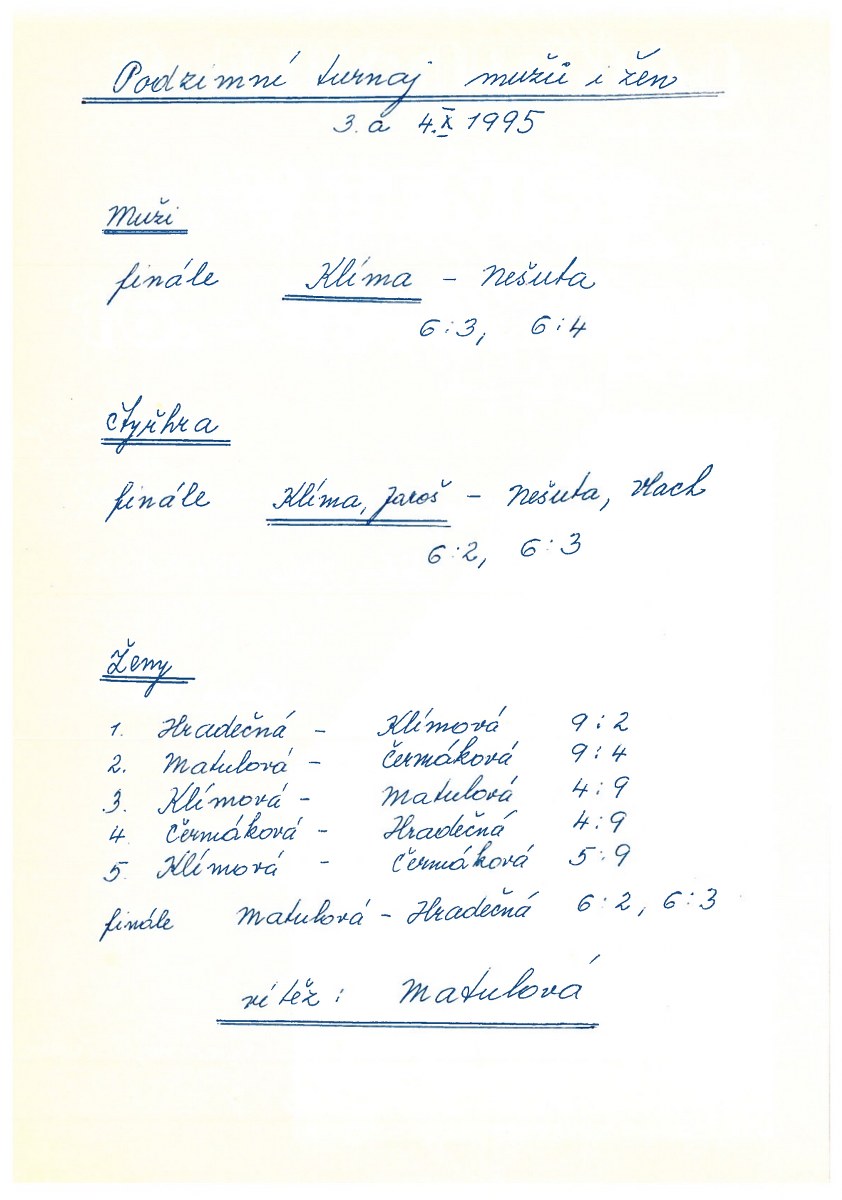 Podzimní turnaj mužů i žen
3. a 4.X 1995
Muži
finále Klíma - Nešuta
6:3, 6:4
Čtyřhra
finále Klíma, Jaroš - Nešuta, Vlach
6:2, 6:3
Ženy
1. Hradečná - Klímová 9:2
2. Matulová - Čermáková 9:4
3. Klímová - Matulová 4:9
4. Čermáková - Hradečná 4:9
5. Klímová - Čermáková 5:9
finále Matulová - Hradečná 6:2, 6:3
vítěž: Matulová